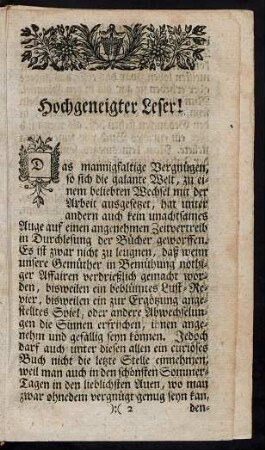 Hochgeneigter Leser!
Das mannigfaltige Vergnügen,
so sich die galante Welt, zu ei-
nem beliebten Wechsel mit der
Arbeit ausgesetzet, hat unter
andern auch kein unachtsames
Auge auf einen angenehmen Zeitvertreib
in Durchlesung der Bücher geworffen.
Es ist zwar nicht zu leugnen, daß wenn
unsere Gemüther in Bemühung nothi-
ger Affairen verdrießlich gemacht wor-
den, bisweilen ein beblümtes Lust-Re-
vier, bisweilen ein zur Ergötzung ange-
stelltes Spiel, oder andere Abwechselun-
gen die Sinnen erfrischen, ihnen ange-
nehm und gefällig seyn können. Jedoch
darf auch unter diesen allen ein curiöses
Buch nicht die letzte Stelle einnehmen,
weil man auch in den schönsten Sommer-
Tagen in den lieblichsten Auen, wo man
zwar ohnedem vergnügt genug seyn kan,
):( 2 den-